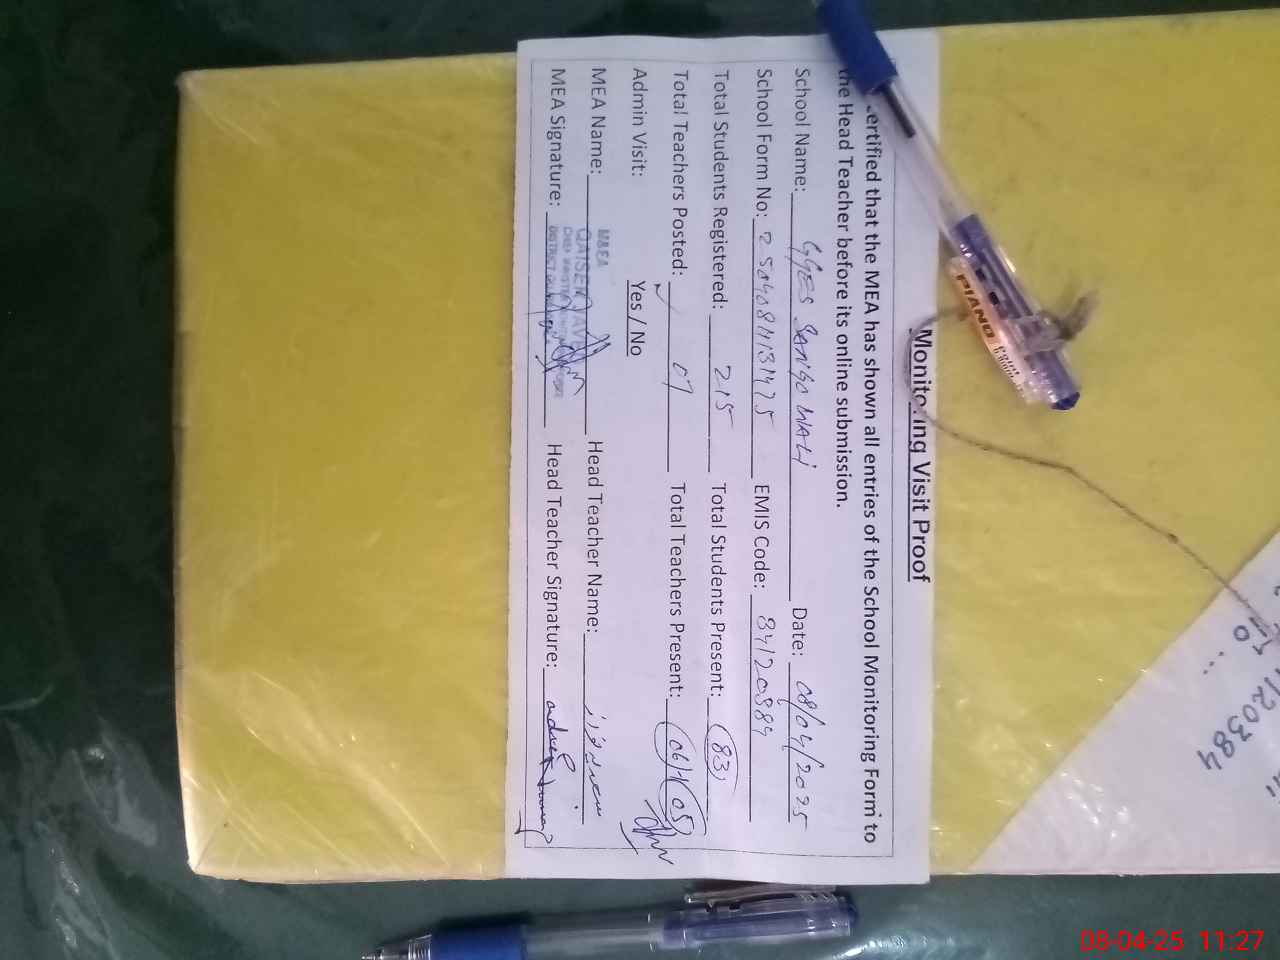 Monitoring Visit Proof
certified that the MEA has shown all entries of the School Monitoring Form to
the Head Teacher before its online submission.
School Name: GGES SANGO WALI Date: 08/04/2025
School Form No: EMIS Code: 84120384
Total Students Registered: 215 Total Students Present: 83
Total Teachers Posted: 07 Total Teachers Present: 06 05
Admin Visit: Yes / No
MEA Name: Head Teacher Name:
MEA Signature: Head Teacher Signature:
M&EA
QAISER
PIANO
120384
08-04-25 11:27